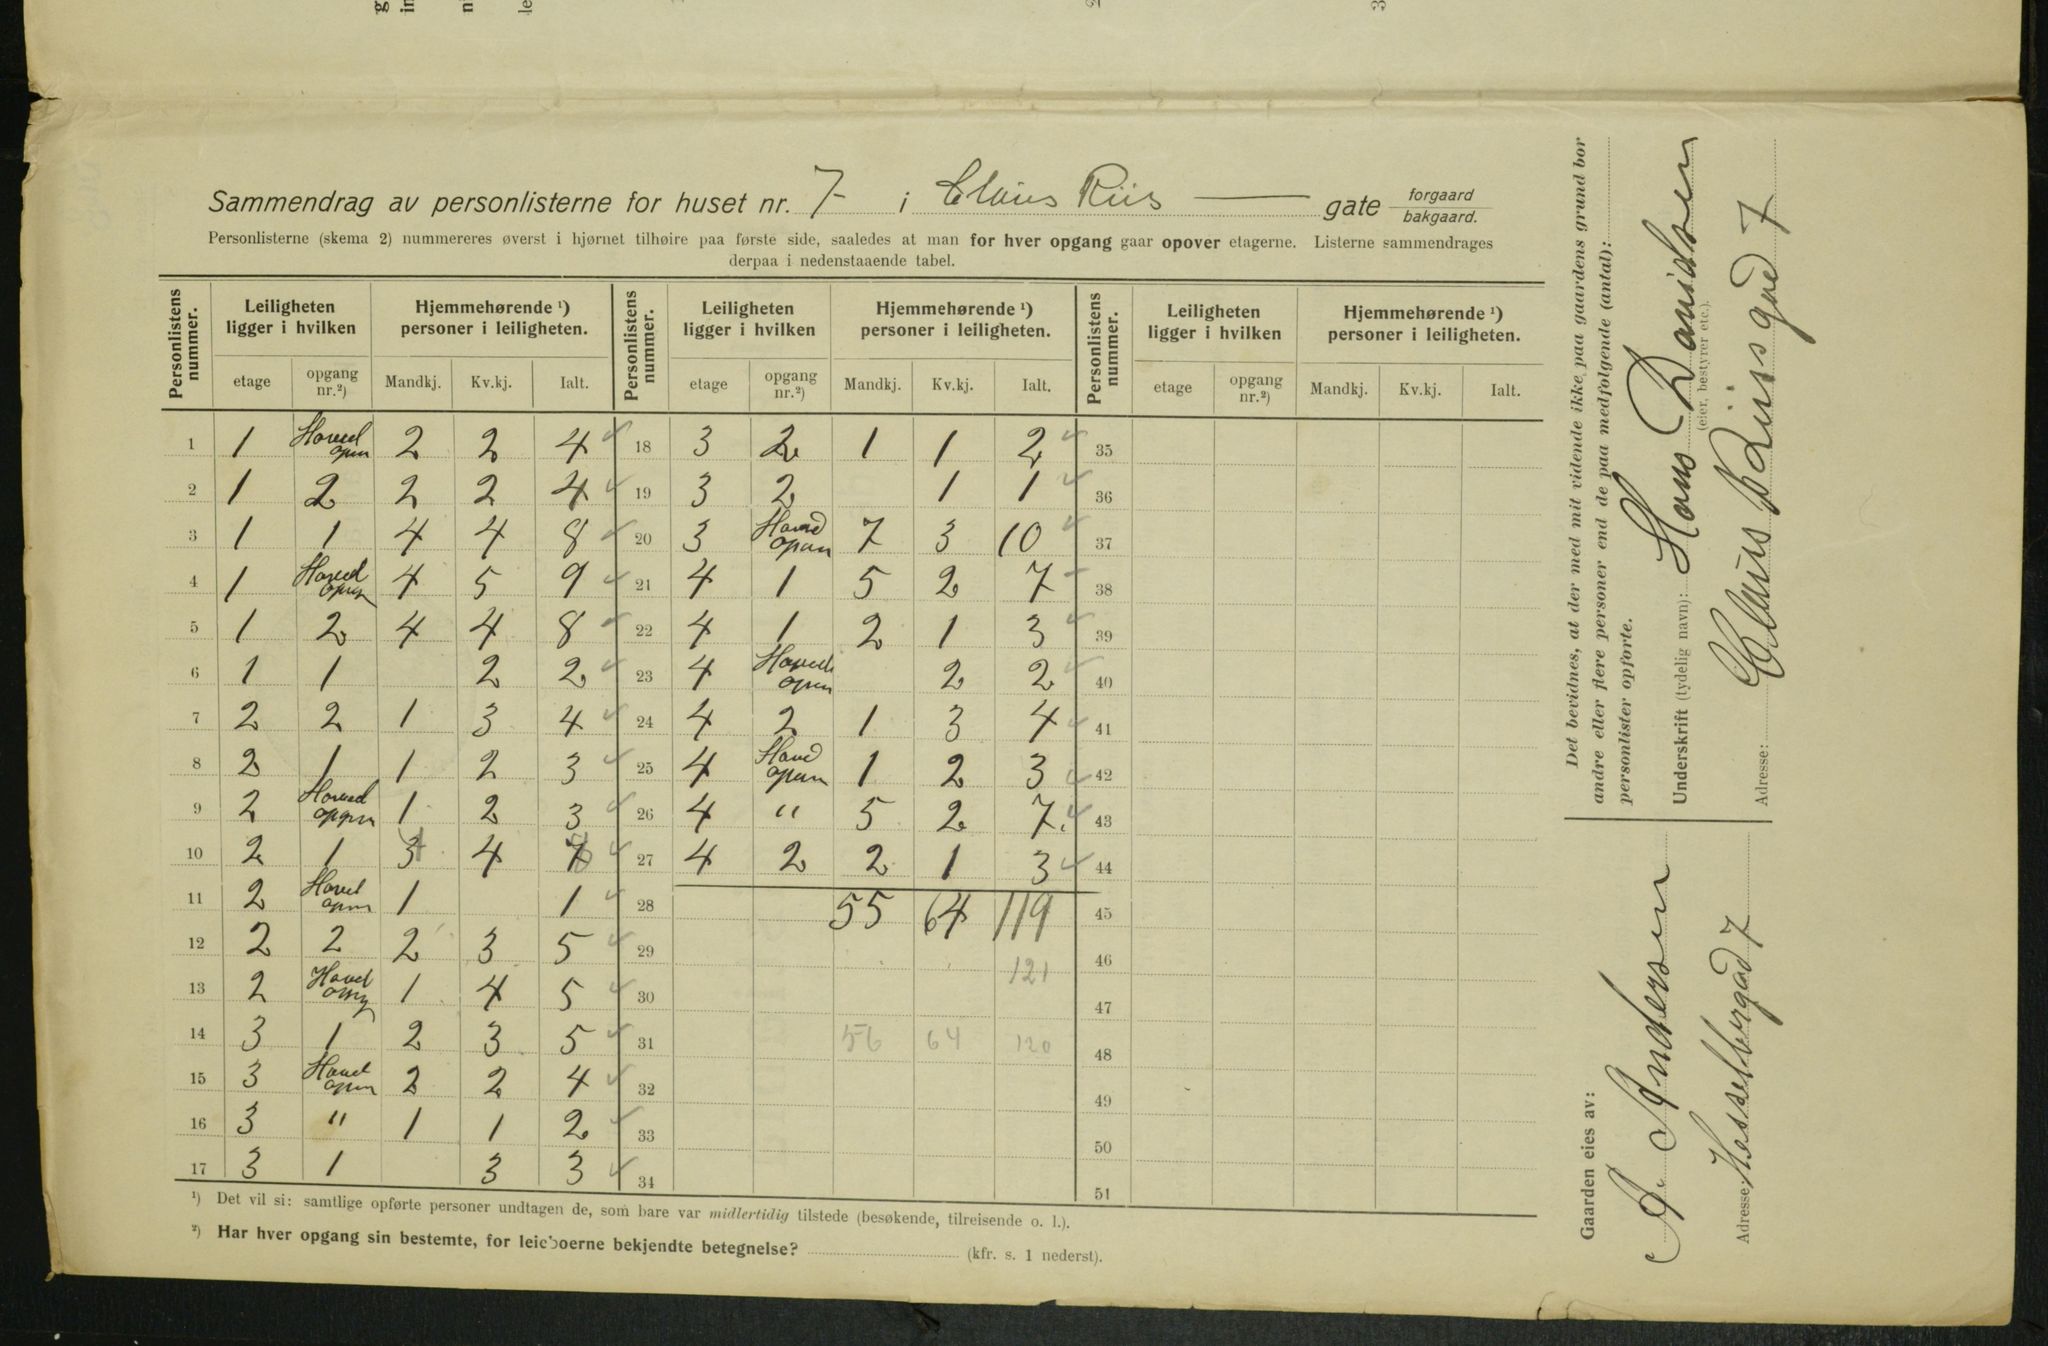 Sammendrag av personlisterne for huset nr. 7 i Claus Riis gate forgaard bakgaard.
Personlisterne (skema 2) nummereres øverst i hjørnet tilhøire paa første side, saaledes at man for hver opgang gaar opover etagerne. Listerne sammendrages
derpaa i nedenstaaende tabel.
Personlistens nummer. Leiligheten ligger i hvilken Hjemmehørende ¹) personer i leiligheten. Personlistens nummer. Leiligheten ligger i hvilken Hjemmehørende ¹) personer i leiligheten. Personlistens nummer. Leiligheten ligger i hvilken Hjemmehørende ¹) personer i leiligheten.
etage opgang nr.²) Mandkj. Kv.kj. Ialt. etage opgang nr.²) Mandkj. Kv.kj. Ialt. etage opgang nr.²) Mandkj. Kv.kj. Ialt.
1 1 2 2 4 18 3 2 1 1 2 35
2 1 2 2 2 4 19 3 2 1 1 36
3 1 1 4 4 8 20 3 7 3 10 37
4 1 4 5 9 21 4 1 5 2 7 38
5 1 2 4 4 8 22 4 1 2 1 3 39
6 1 1 2 2 23 4 2 2 40
7 2 2 1 3 4 24 4 2 1 3 4 41
8 2 1 1 2 3 25 4 1 2 3 42
9 2 1 2 3 26 4 " 5 2 7. 43
10 2 1 4 27 4 2 2 1 3 44
11 2 1 1 28 55 64 119 45
12 2 2 2 3 5 29 46
13 2 1 4 5 30 121 47
14 3 1 2 3 5 31 56 64 120 48
15 3 2 2 4 32 49
16 3 " 1 1 2 33 50
17 3 1 3 3 34 51
¹) Det vil si: samtlige opførte personer undtagen de, som bare var midlertidig tilstede (besøkende, tilreisende o. l.).
²) Har hver opgang sin bestemte, for leieboerne bekjendte betegnelse? (kfr. s. 1 nederst).
Det bevidnes, at der med mit vidende ikke paa gaardens grund bor
andre eller flere personer end de paa medfølgende (antal):
personlister opførte.
Underskrift (tydelig navn): Hans Danielsen
(eier, bestyrer etc.).
Adresse: Claus Riisgad 7
Gaarden eies av:
A. Andersen
Adresse: Hesselbergad 7